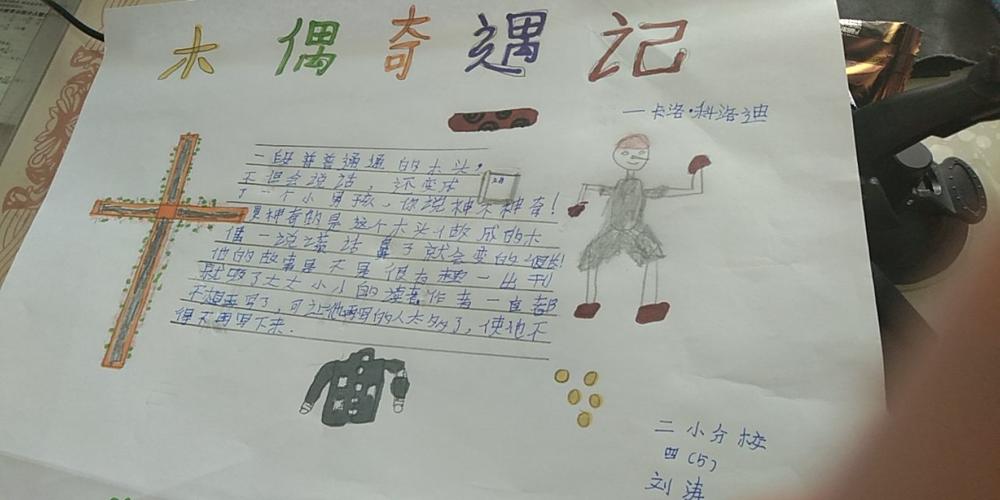 木偶奇遇记
—卡洛·科洛迪
一段普普通通的木头,
不但会说话，还变成
了一个小男孩，你说神不神奇!
更神奇的是这个木头人做成的木
偶一说谎话鼻子就会变的很长!
他的故事是不是很有趣一出刊
就吸了大大小小的读者作者一直都
不想再写了，可让他再写的人太多了，使他不
得不再写下来.
二小分校
四(5)
刘涛